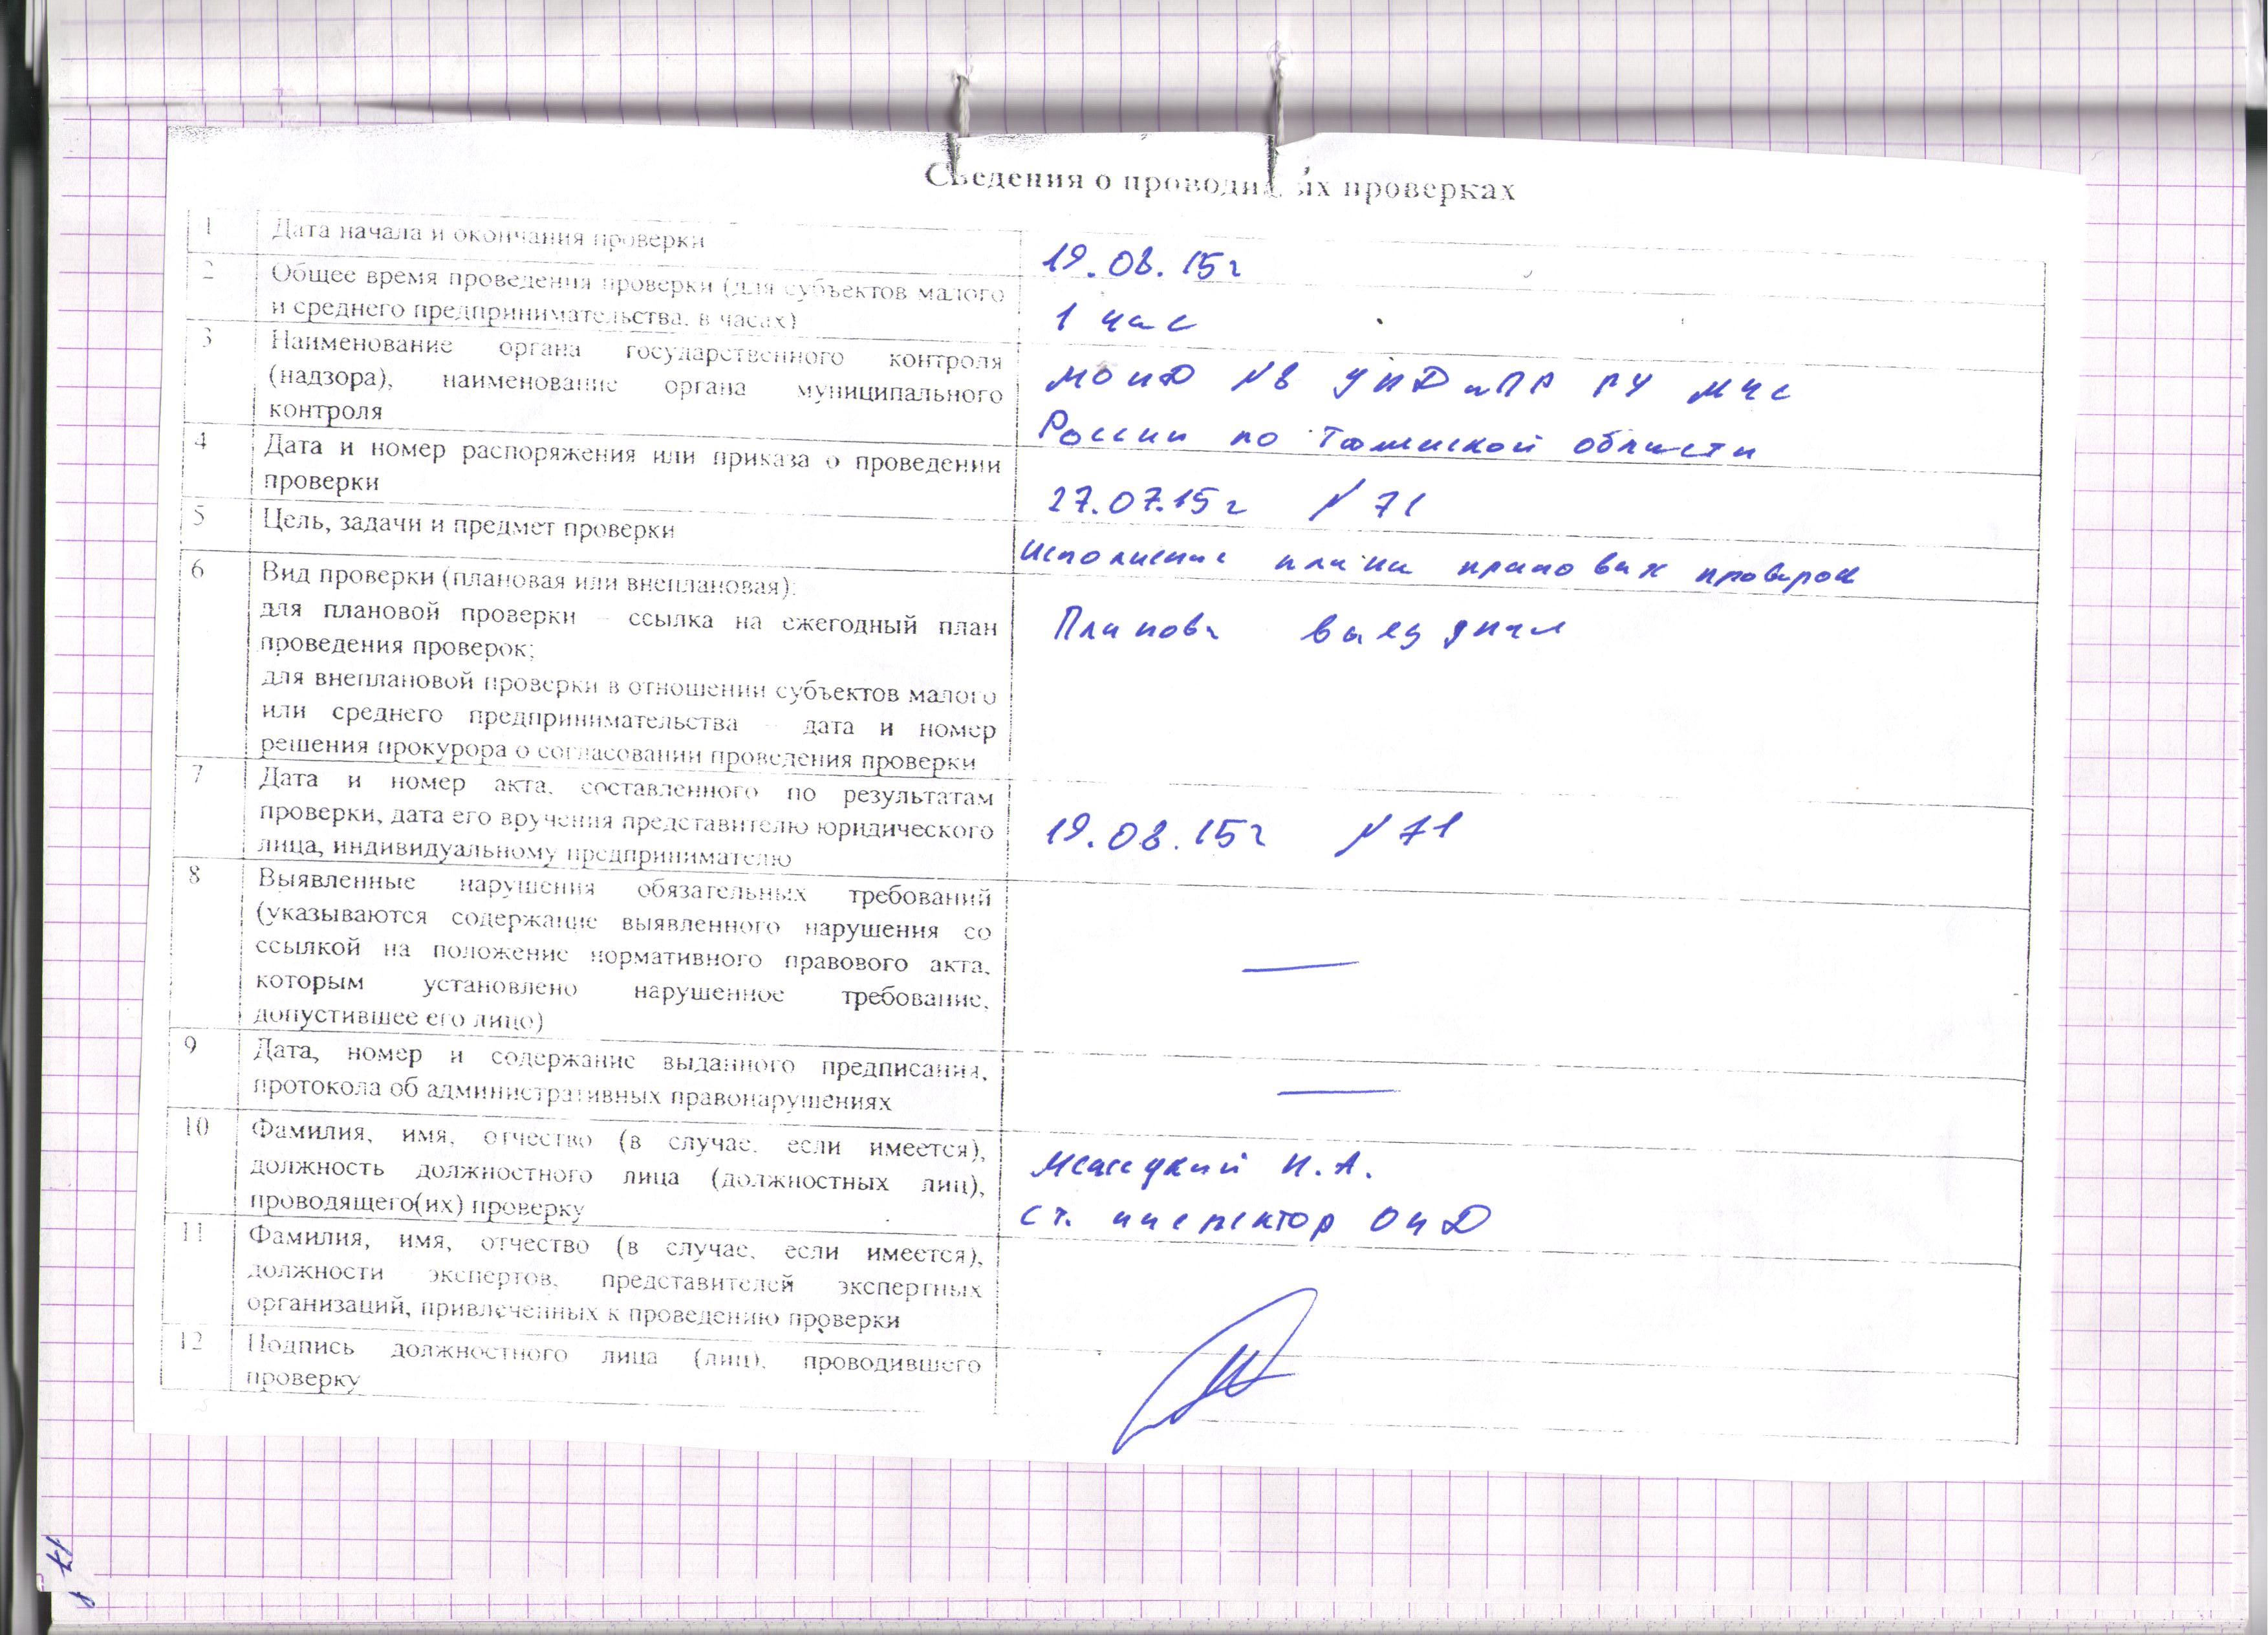 Сведения о проводимых проверках
1 Дата начала и окончания проверки
19.08.15г
2 Общее время проведения проверки (для субъектов малого
и среднего предпринимательства, в часах)
1 час
3 Наименование органа государственного контроля
(надзора), наименование органа муниципального
контроля
МОНД №8 УНДиПР ГУ МЧС
России по Тюменской области
4 Дата и номер распоряжения или приказа о проведении
проверки
27.07.15г №71
5 Цель, задачи и предмет проверки
Исполнение плана плановых проверок
6 Вид проверки (плановая или внеплановая):
для плановой проверки – ссылка на ежегодный план
проведения проверок;
для внеплановой проверки в отношении субъектов малого
или среднего предпринимательства – дата и номер
решения прокурора о согласовании проведения проверки
Планова выездная
7 Дата и номер акта, составленного по результатам
проверки, дата его вручения представителю юридического
лица, индивидуальному предпринимателю
19.08.15г №71
8 Выявленные нарушения обязательных требований
(указываются содержание выявленного нарушения со
ссылкой на положение нормативного правового акта,
которым установлено нарушенное требование,
допустившее его лицо)
—
9 Дата, номер и содержание выданного предписания,
протокола об административных правонарушениях
—
10 Фамилия, имя, отчество (в случае, если имеется),
должность должностного лица (должностных лиц),
проводящего(их) проверку
Н.А.
ст. инспектор ОНД
11 Фамилия, имя, отчество (в случае, если имеется),
должности экспертов, представителей экспертных
организаций, привлеченных к проведению проверки
12 Подпись должностного лица (лиц), проводившего
проверку